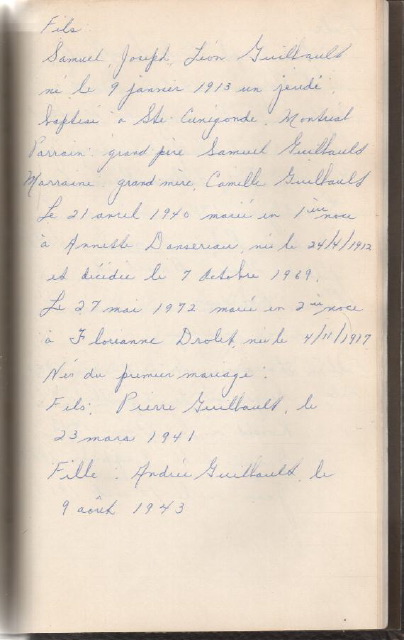 Fils
Samuel, Joseph, Léon Guilbault
né le 9 janvier 1913 un jeudi
baptisé à Ste Cunégonde. Montréal
Parrain: grand père Samuel Guilbault
Marraine: grand mère, Camille Guilbault
Le 21 avril 1940 marié en 1ière noce
à Annette Dansereau, née le 24/4/1912
et décédée le 7 octobre 1969.
Le 27 mai 1972 marié en 2ième noce
à Florianne Drolet, née le 4/11/1917
Nés du premier mariage:
Fils: Pierre Guilbault, le
23 mars 1941
Fille: Andrée Guilbault, le
9 août 1943